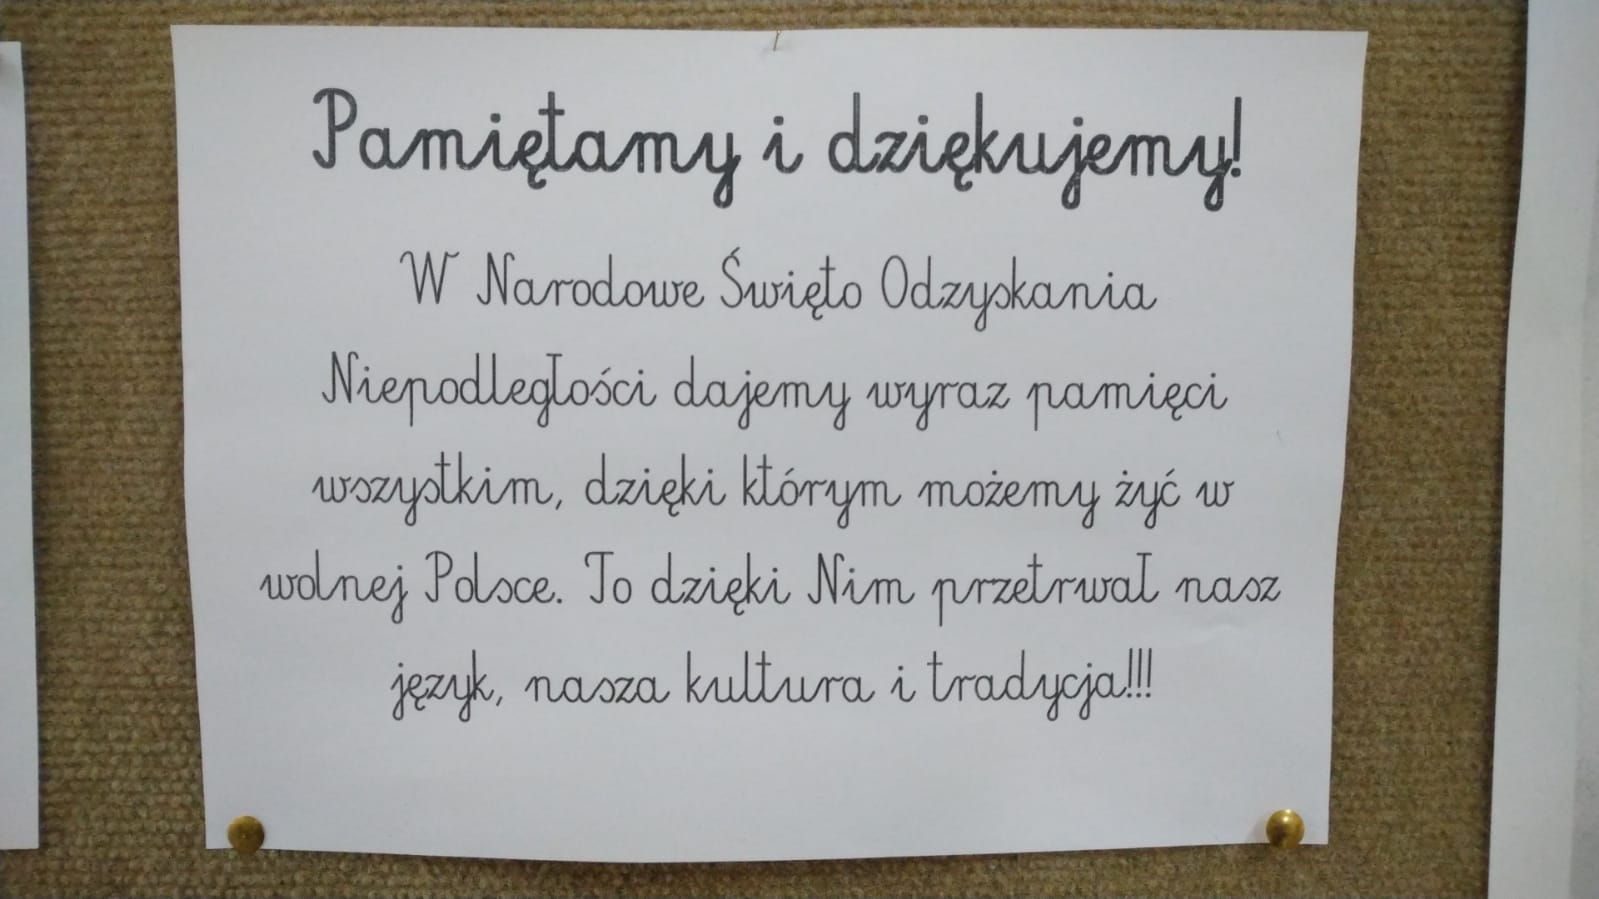 Pamiętamy i dziękujemy!
W Narodowe Święto Odzyskania
Niepodległości dajemy wyraz pamięci
wszystkim, dzięki którym możemy żyć w
wolnej Polsce. To dzięki Nim przetrwał nasz
język, nasza kultura i tradycja!!!